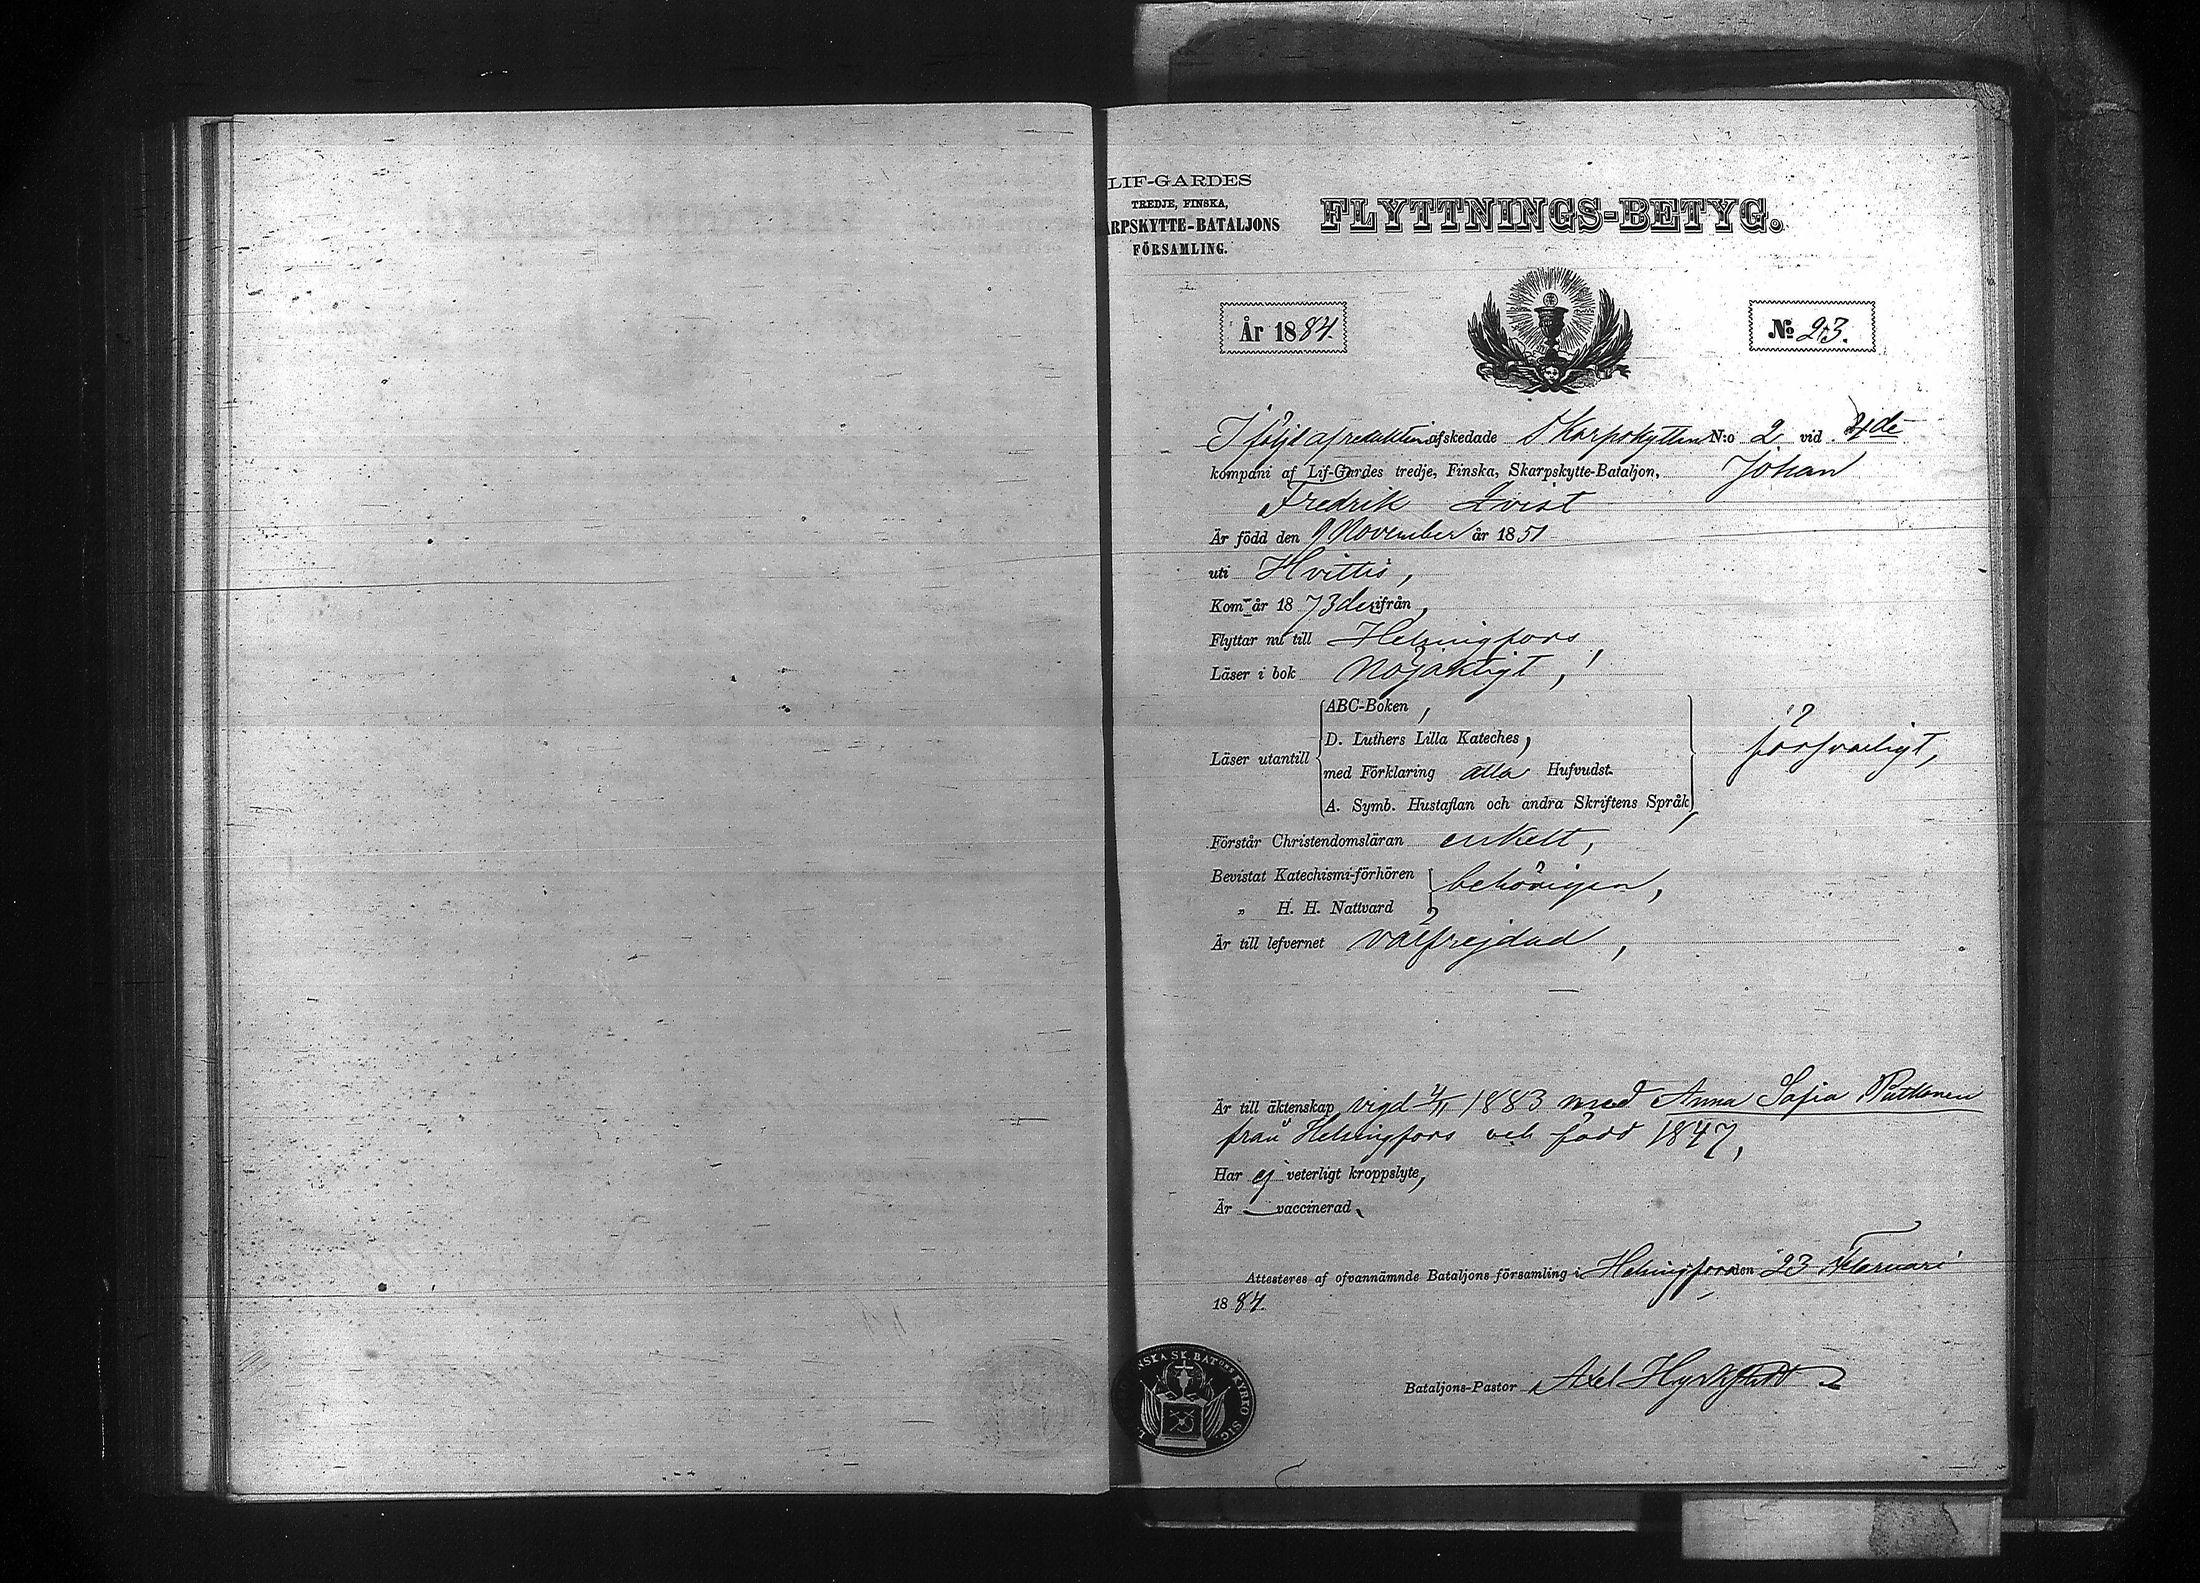 LIF-GARDES
TREDJE, FINSKA,
ARPSKYTTE-BATALJONS
FÖRSAMLING.
FLYTTNINGS-BETYG.
År 1884.
No 23.
I följd af reduktion afskedade Skarpskytten N:o 2 vid 4de
kompani af Lif-Gardes tredje, Finska, Skarpskytte-Bataljon, Johan
Fredrik Qvist
Är född den 9 November år 1851
uti Hvittis,
Kom år 1873 derifrån,
Flyttar nu till Helsingfors,
Läser i bok Nöjaktigt,
ABC-Boken,
D. Luthers Lilla Kateches,
Läser utantill
med Förklaring alla Hufvudst.
A. Symb. Hustaflan och andra Skriftens Språk,
försvarligt,
Förstår Christendomsläran enkelt,
Bevistat Katechismi-förhören
" H. H. Nattvard
behörigen,
Är till lefvernet välfrejdad,
Är till äktenskap vigd 1883 med Anna Sofia
från Helsingfors och född 1847,
Har ej veterligt kroppslyte,
Är vaccinerad,
Attesteras af ofvannämnde Bataljons församling i Helsingfors den 23 Februari
1884.
Bataljons-Pastor Axel
NSKA SK. BATONS KYRKO SIG.